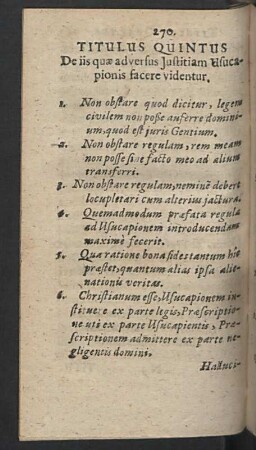 270.
TITULUS QUINTUS
De iis quæ adversus Justitiam Usuca-
pionis facere videntur.
1. Non obstare quod dicitur, legem
civilem non posse auferre domini-
um, quod est juris Gentium.
2. Non obstare regulam, rem meam
non posse sine facto meo ad alium
transferri.
3. Non obstare regulam, neminē debere
locupletari cum alterius jactura.
4. Quemadmodum præfata regula
ad Usucapionem introducendam
maximè fecerit.
5. Qua ratione bona fides tantum hîc
præstet, quantum alias ipsa alie-
nationis veritas.
6. Christianum esse, Usucapionem in-
stituere ex parte legis, Præscriptio-
ne uti ex parte Usucapientis, Præ-
scriptionem admittere ex parte ne-
gligentis domini.
Hactnci-